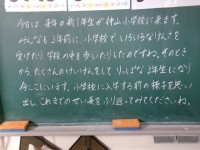 今日は、来年の新1年生が神山小学校に来ます。
みんなも1年前に、小学校でいろいろなけんさを
受けたり、学校の中を歩いたりしたのですね。そのとき
から たくさんのけいけんをして りっぱな1年生になり
今ここにいます。小学校に入学する前の様子を思い
出し、これまでのせい長をふり返ってみてくださいね。